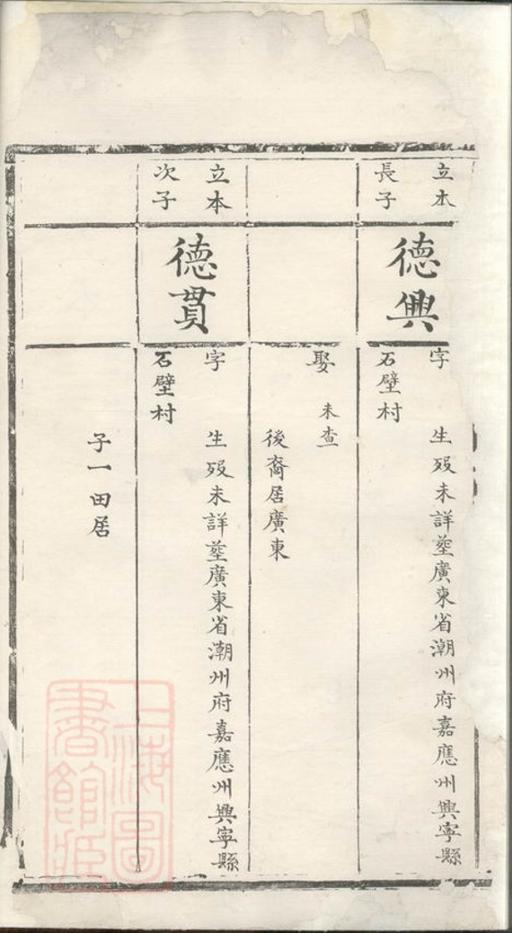 立本
長子
德興
字
生歿未詳塟廣東省潮州府嘉應州興寧縣
石壁村
娶 未查
後裔居廣東
立本
次子
德貫
字
生歿未詳塟廣東省潮州府嘉應州興寧縣
石壁村
子一田居
上海圖
書館藏